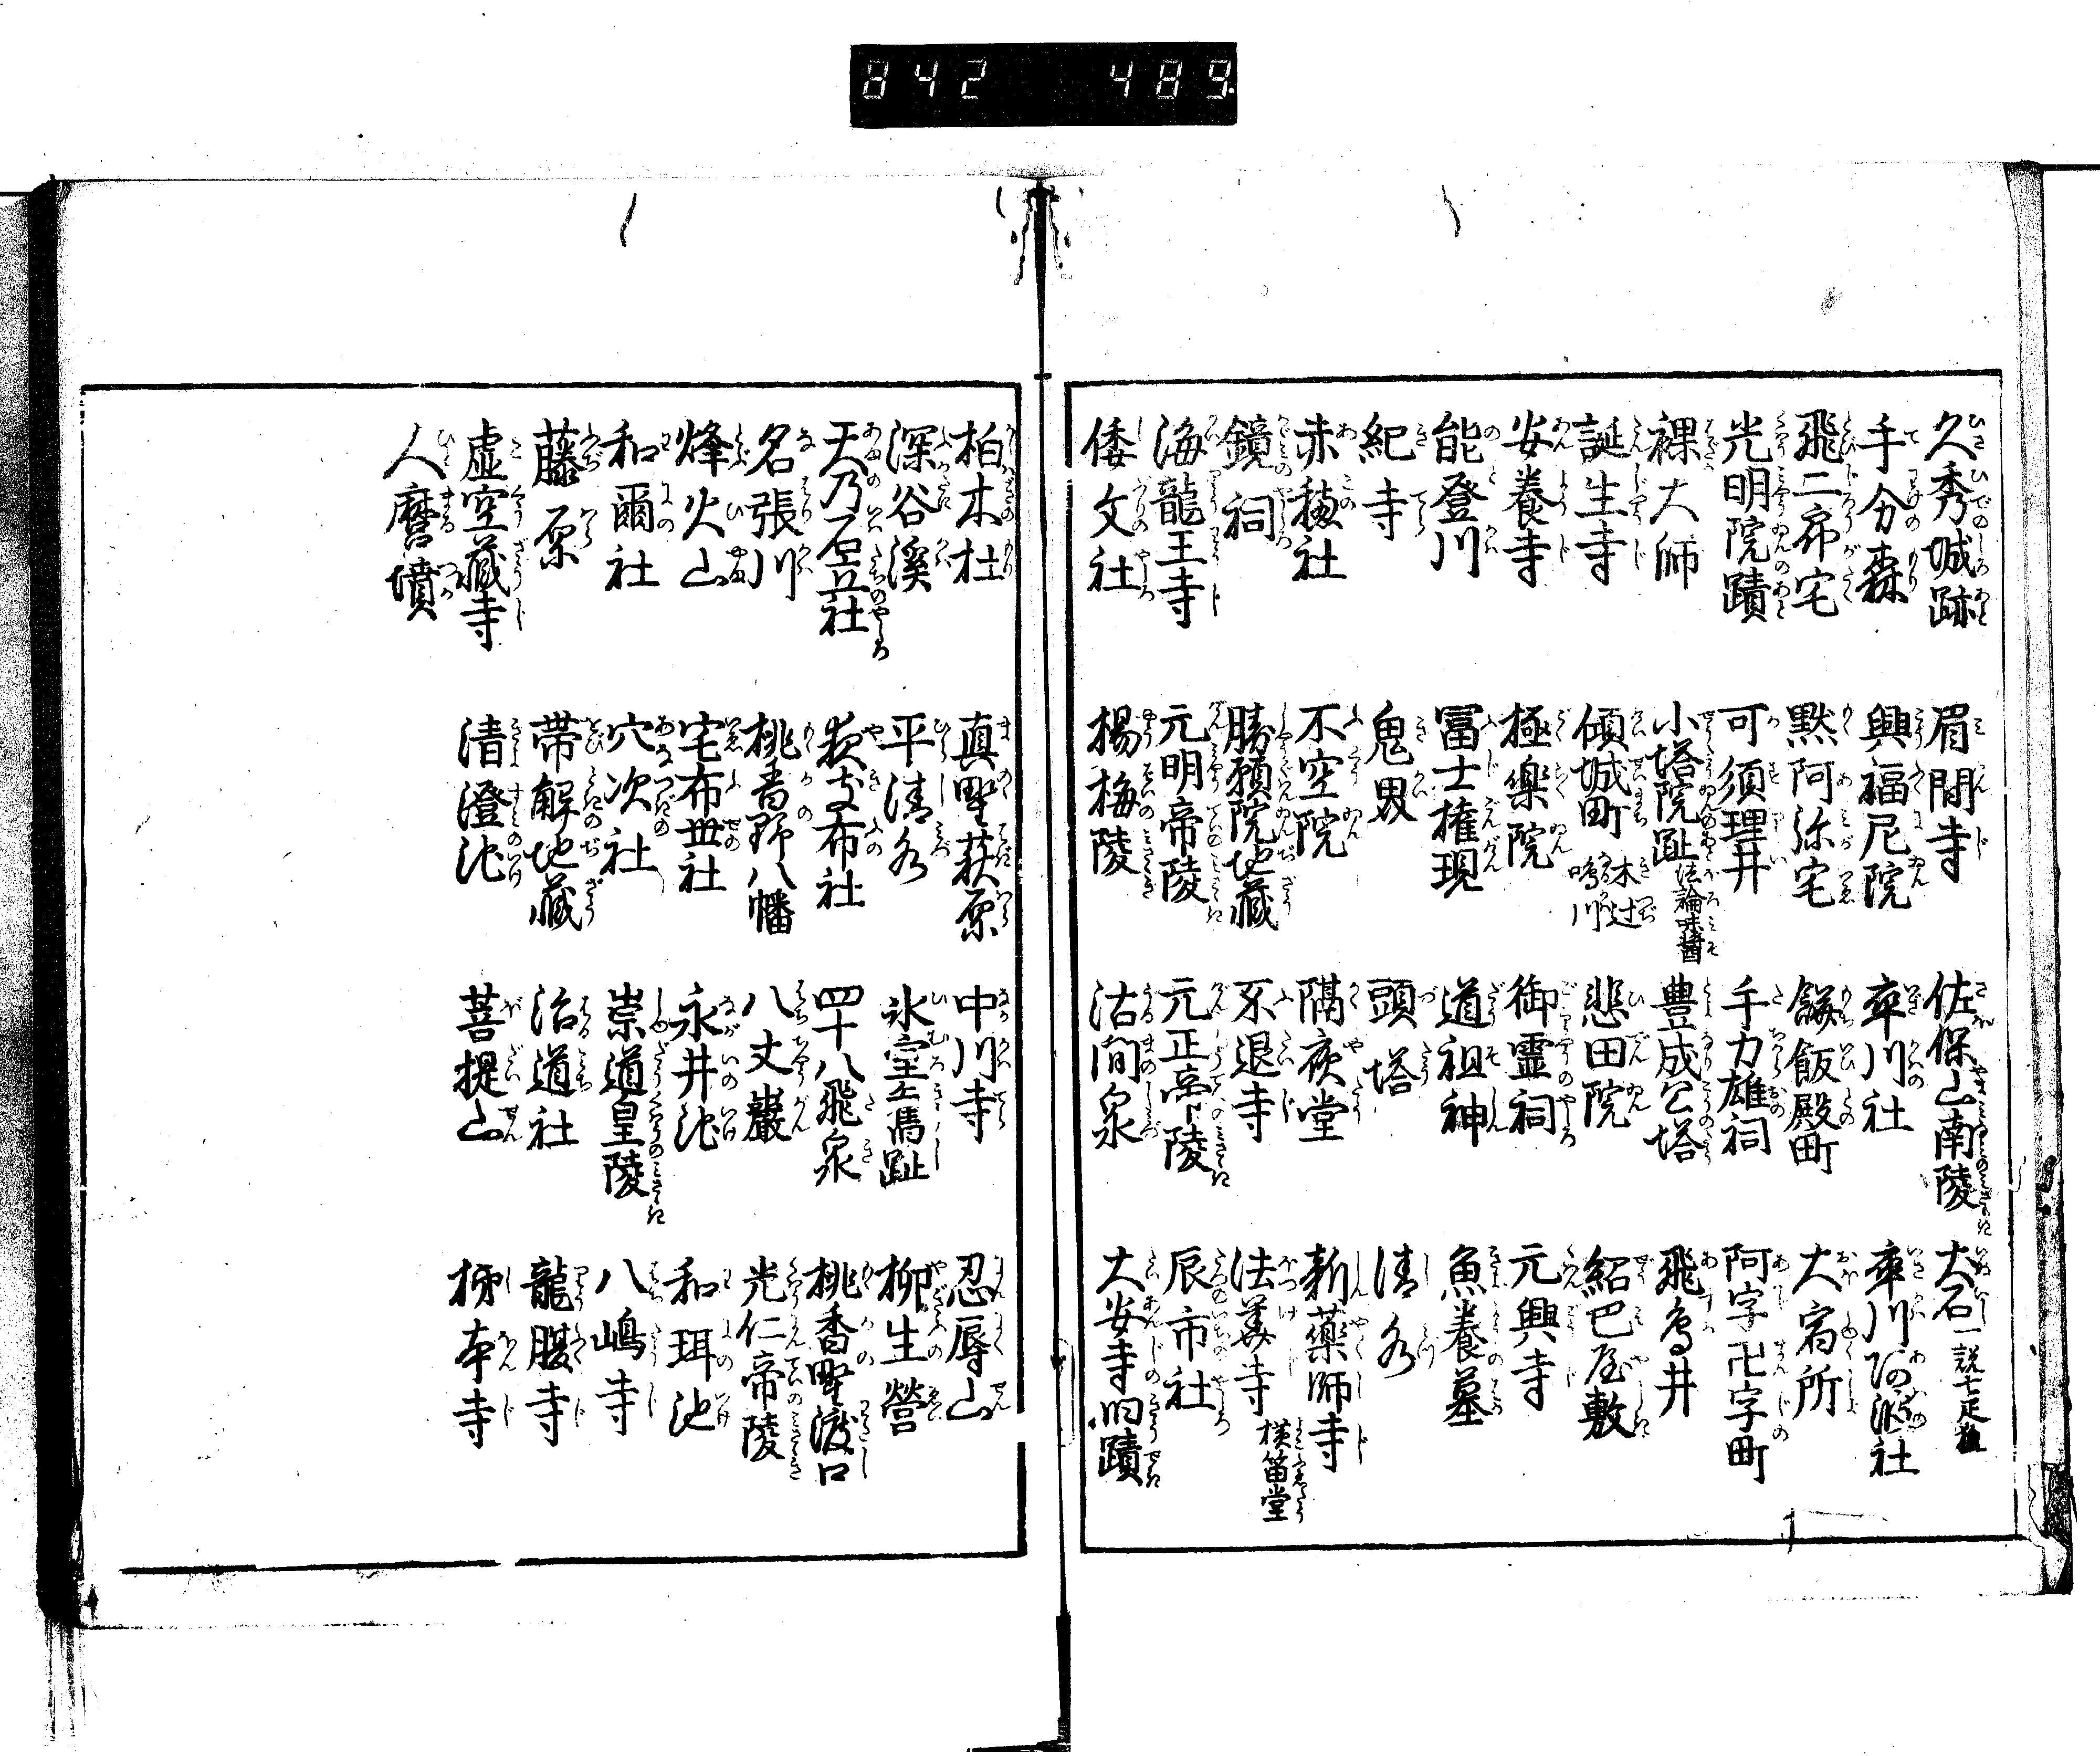 842 489
久秀城跡 眉間寺 佐保山南陵 犬石 一説七疋狐
手分森 興福尼院 率川社 率川阿波社
飛二郎宅 黙阿弥宅 餅飯殿町 大宿所
光明院蹟 可須理井 手力雄祠 阿字卍字町
裸大師 小塔院趾 法論味醤 豊成公塔 飛鳥井
誕生寺 傾城町 木辻 鳴川 悲田院 紹巴屋敷
安養寺 極楽院 御霊祠 元興寺
能登川 冨士権現 道祖神 魚養墓
紀寺 鬼界 頭塔 清水
赤穂社 不空院 隔夜堂 新薬師寺
鏡祠 勝願院地蔵 不退寺 法華寺 横笛堂
海龍王寺 元明帝陵 元正帝陵 辰市社
倭文社 楊梅陵 沽間泉 大安寺旧蹟
柏木杜 真野萩原 中川寺 忍辱山
深谷溪 平清水 氷室土馮趾 柳生營
天乃石立社 夜支布社 四十八飛泉 桃香野渡口
名張川 桃香野八幡 八丈巖 光仁帝陵
烽火山 宅布世社 永井池 和珥池
和爾社 穴次社 崇道皇陵 八嶋寺
藤原 帯解地蔵 治道社 龍腹寺
虚空蔵寺 清澄池 菩提山 柿本寺
人麿墳